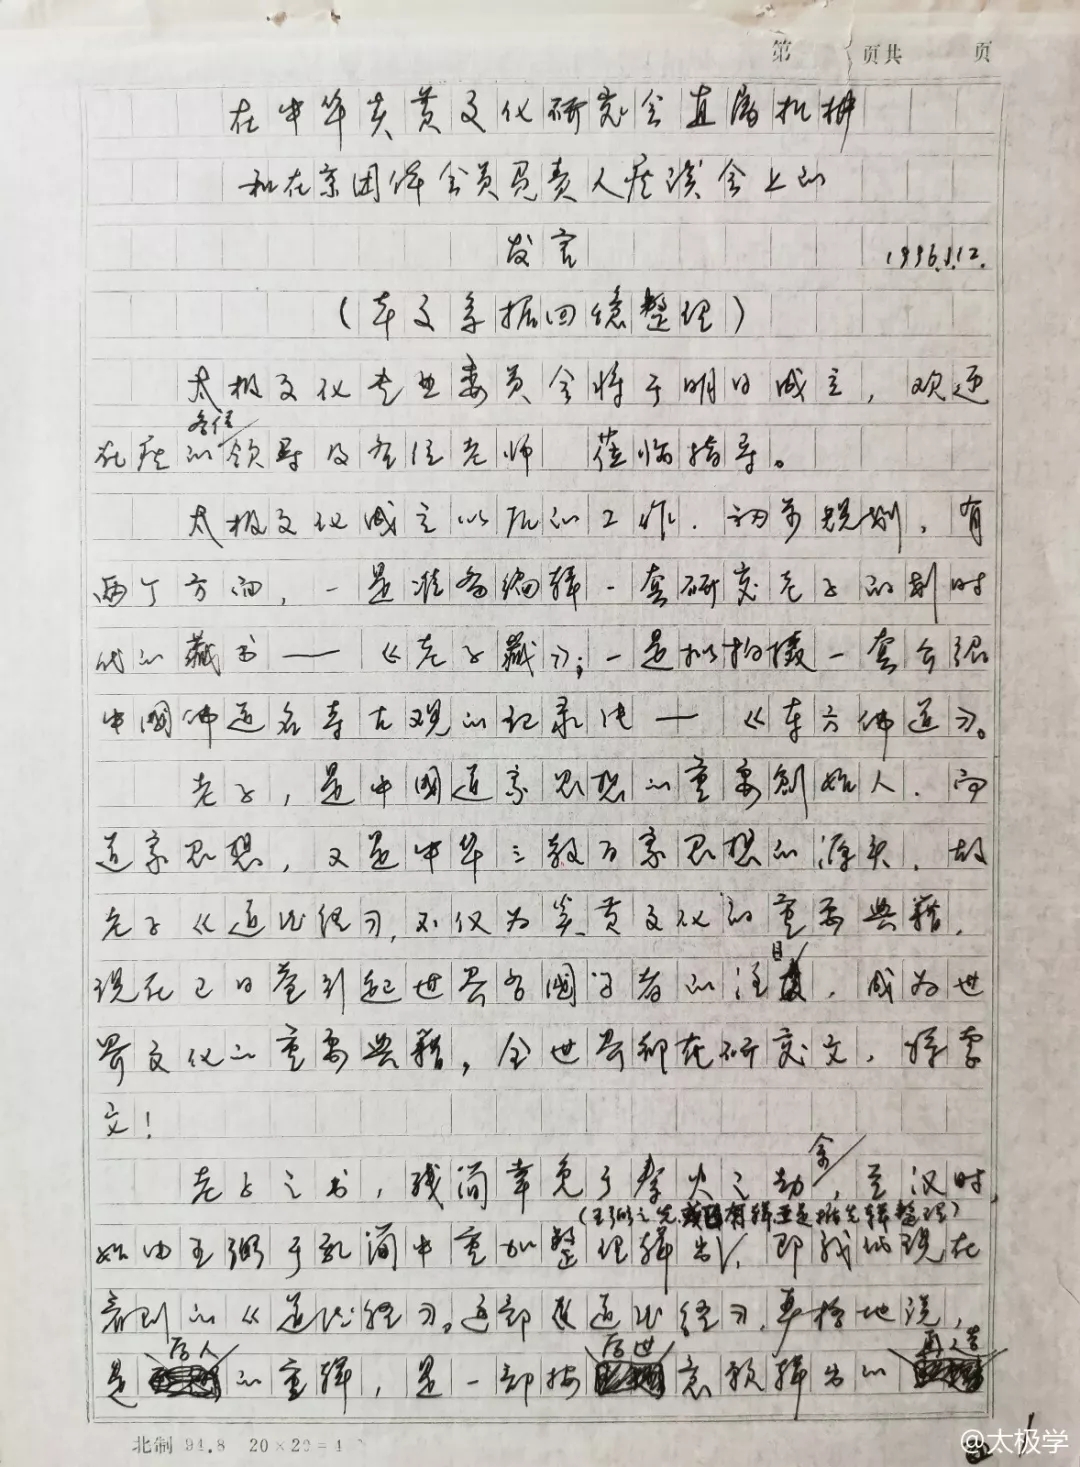 第 页共 页
在中华炎黄文化研究会直属机构
和在京团体会员负责人座谈会上的
发言 1996.1.12.
(本文系据回憶整理)
太极文化专业委员会将于明日成立,欢迎
各位
在座的领导及各位老师 莅临指导。
太极文化成立以后的工作.初步规划,有
两个方面,一是准备编辑一套研究老子的划时
代的藏书——《老子藏》;一是拟拍摄一套介绍
中國佛道名寺古观的记录片—《东方佛道》。
老子,是中國道家思想的重要創始人.而
道家思想,又是中华三教百家思想的源头.故
老子《道德经》,不仅为炎黄文化的重要典籍,
目
现在已日益引起世界各國学者的注,成为世
界文化的重要典籍,全世界都在研究它,探索
它!
余
老子之书,残简幸免于秦火之劫,至汉时,
(王弼之先或已有辑,王是据先辑整理)
始由王弼于乱简中重加整理辑出,即我们现在
看到的《道德经》。这部《道德经》,严格地说,
后人 后世 再造
是的重辑,是一部按意预辑出的
北制 94.8 20×20=4
@太极学